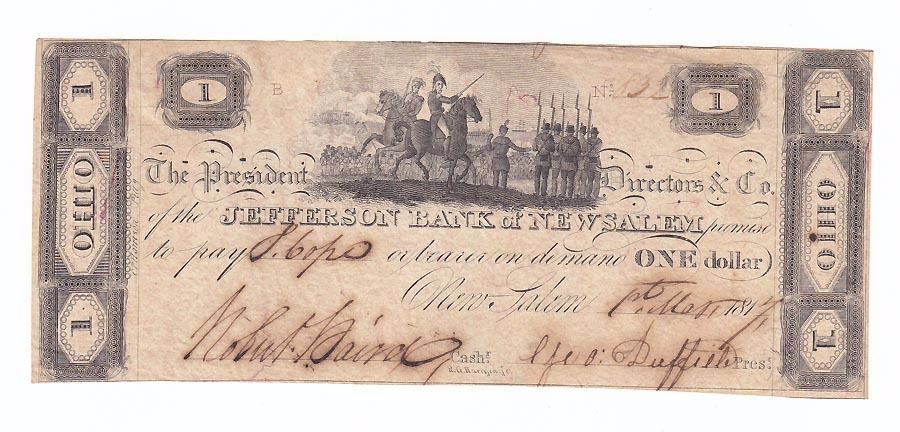 1 1 B Nº 1
The President Directors & Co.
of the JEFFERSON BANK of NEW SALEM promise
to pay S. Cope or bearer on demand ONE dollar
New Salem 1st 1817
Robert Baird Cashr. Geo: Duffield Prest.
OHIO
1
1
OHIO
1